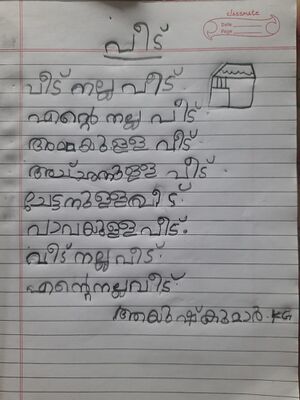 classmate
Date
Page
വീട്
വീട് നല്ല വീട്.
എന്റെ നല്ല വീട്.
അമ്മയുള്ള വീട്.
അച്ഛനുള്ള വീട്.
ചേട്ടനുള്ളവീട്.
വാവയുള്ളവീട്.
വീട് നല്ല വീട്.
എന്റെനല്ലവീട്.
KG